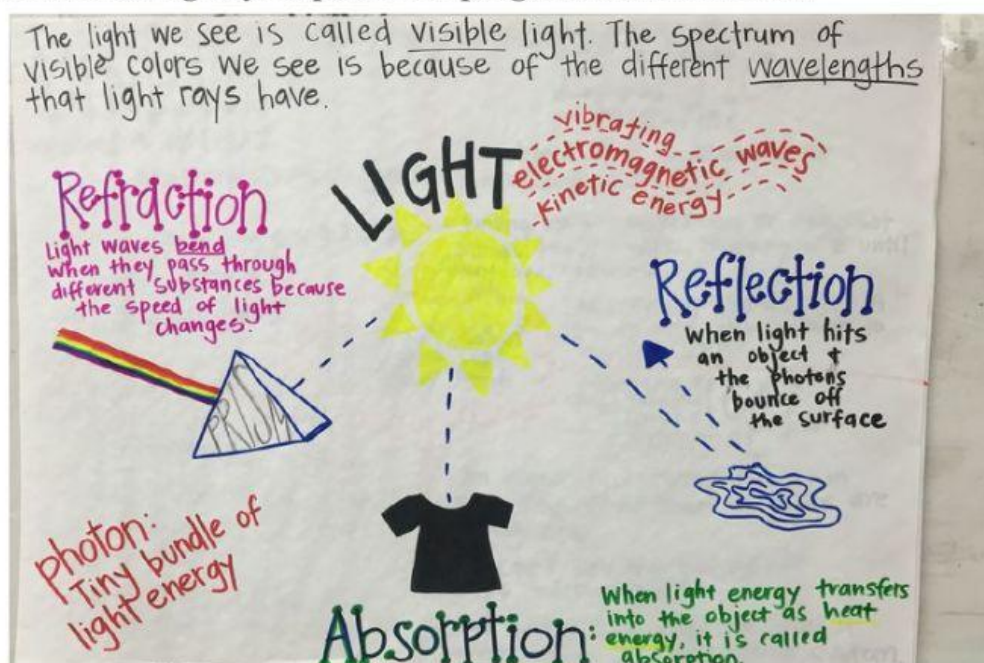 The light we see is called visible light. The spectrum of
visible colors we see is because of the different wavelengths
that light rays have.
LIGHT
vibrating
electromagnetic waves
kinetic energy
Refraction
Light waves bend
when they pass through
different substances because
the speed of light
changes.
PRISM
Reflection
when light hits
an object +
the photons
bounce off
the surface
photon:
Tiny bundle of
light energy
Absorption:
When light energy transfers
into the object as heat
energy, it is called
absorption.